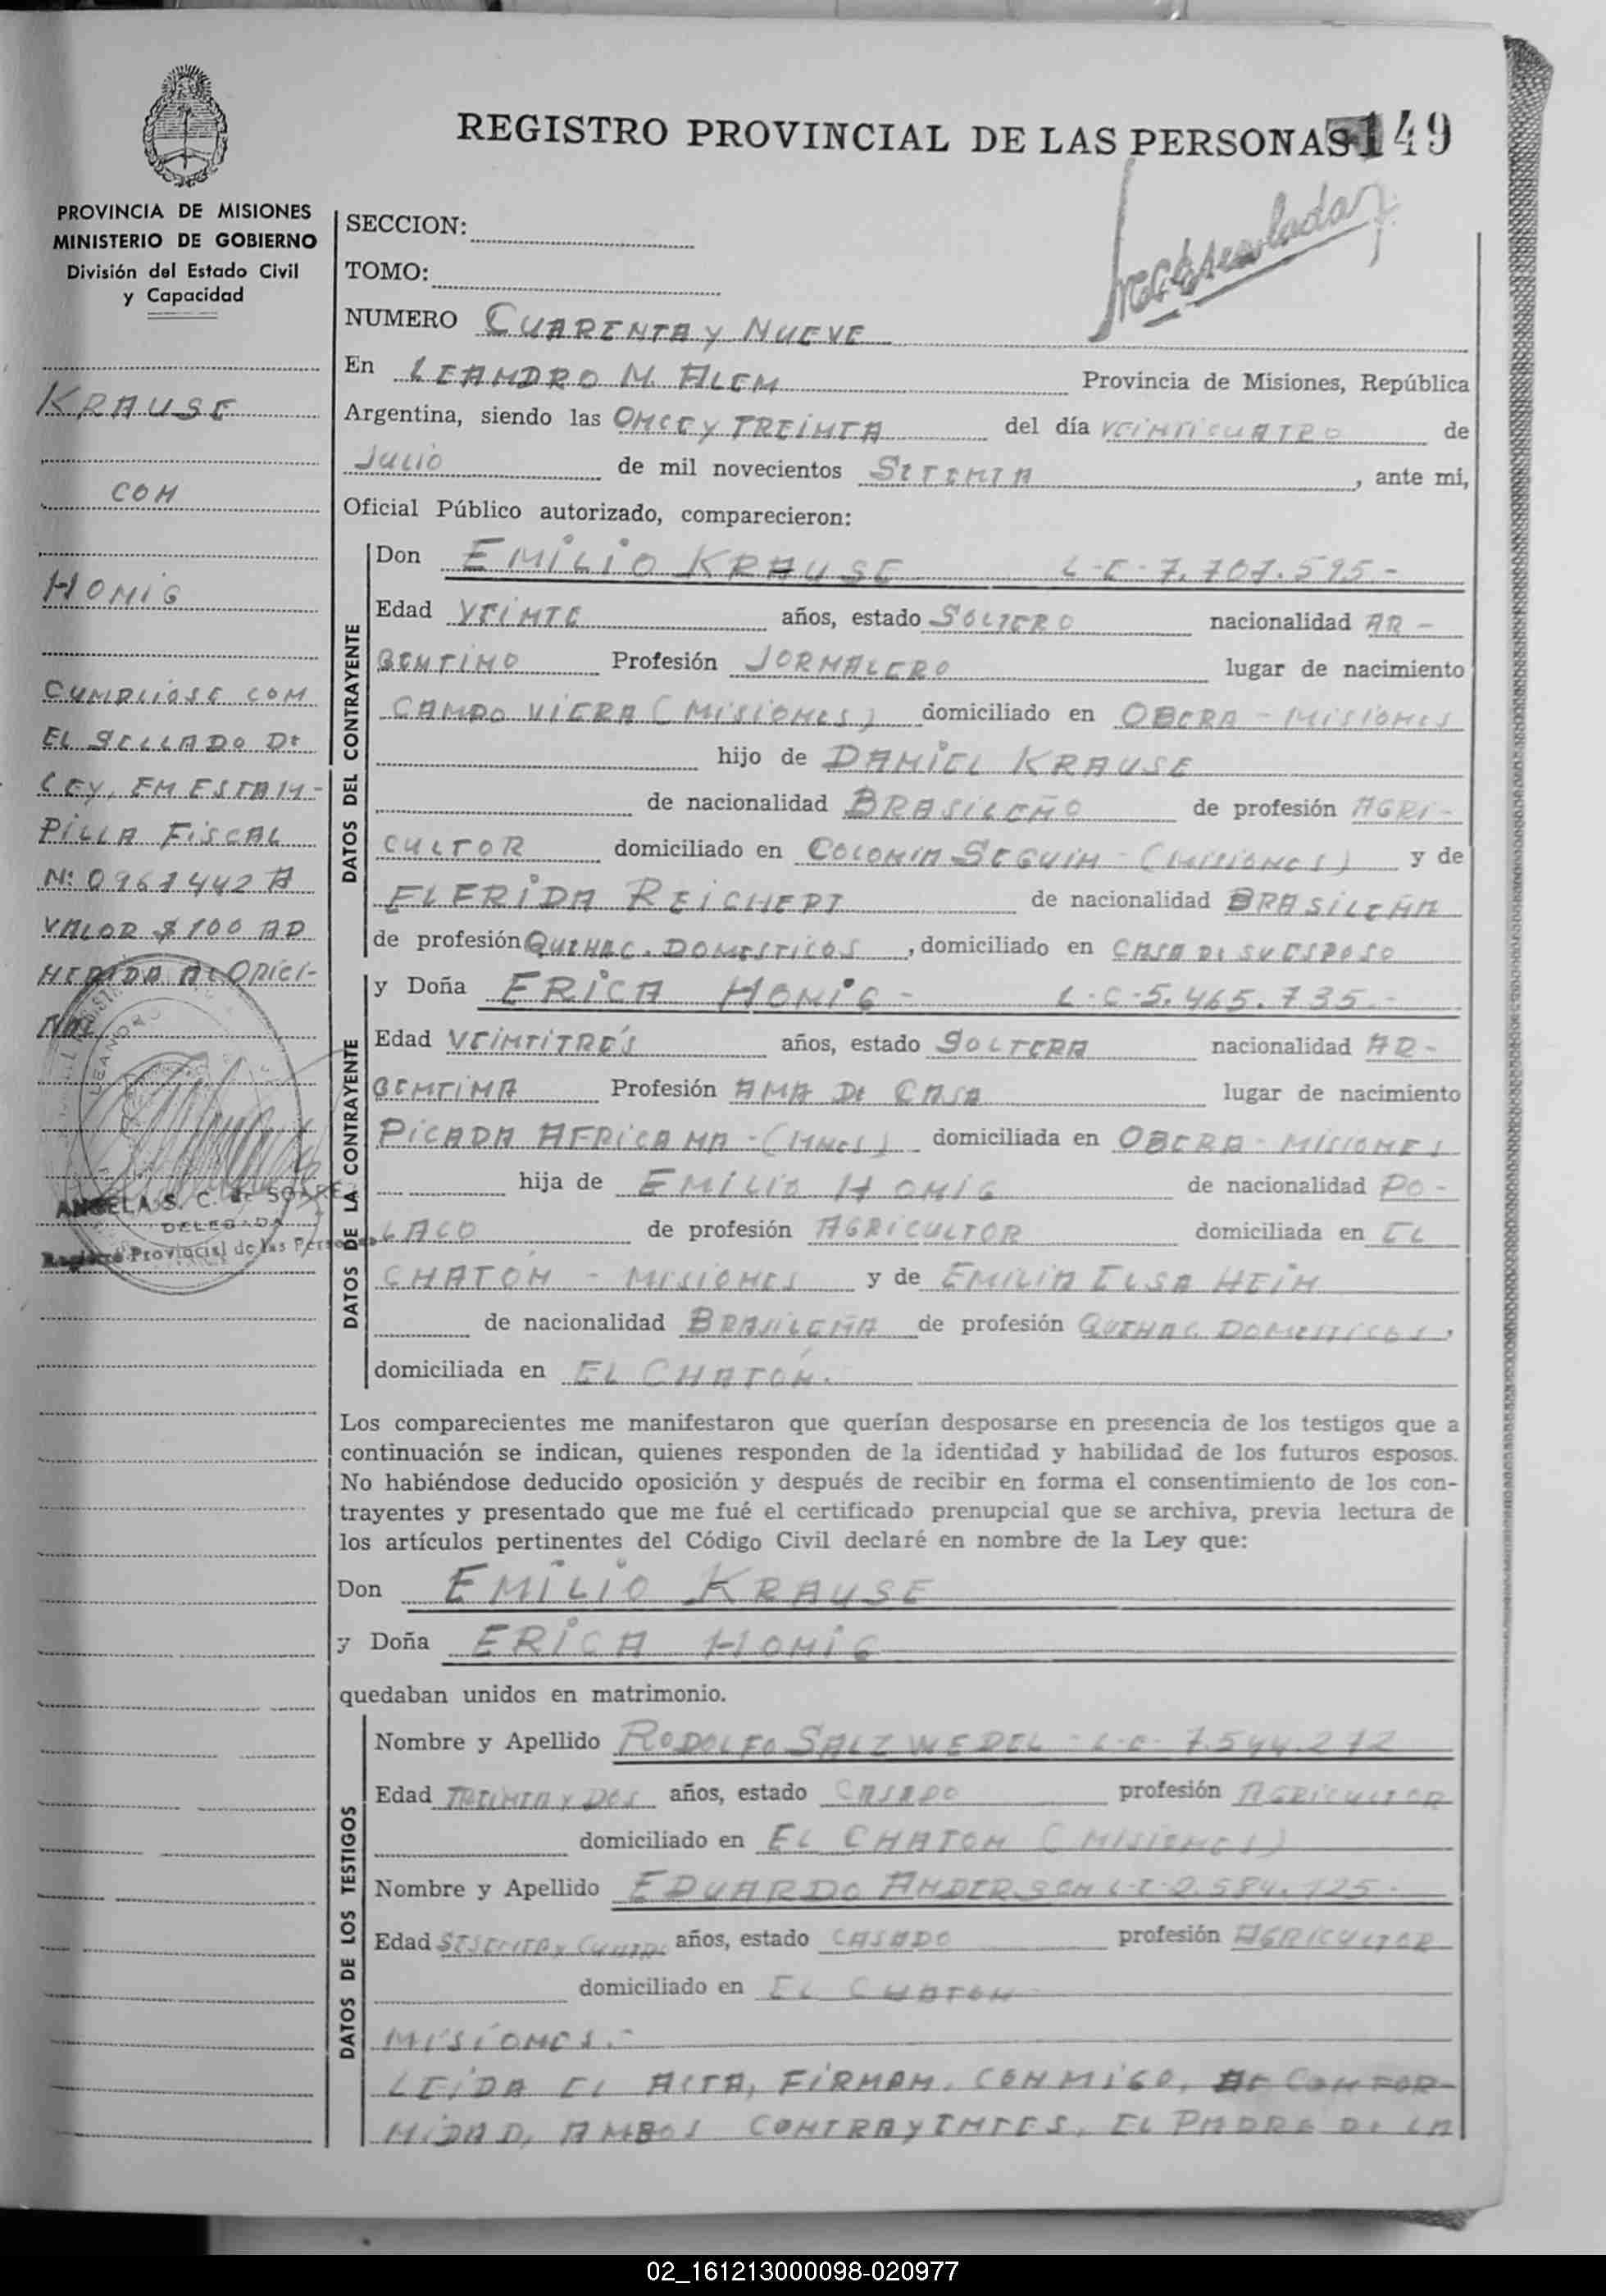 REGISTRO PROVINCIAL DE LAS PERSONAS 149
PROVINCIA DE MISIONES
MINISTERIO DE GOBIERNO
División del Estado Civil
y Capacidad
KRAUSE
CON
HONIG
CUMPLIOSE CON
EL SELLADO DE
LEY, EN ESTAM-
PILLA FISCAL
Nº 0967442 A
VALOR $ 100 AD
HERIDA AL ORIGI-
NAL
ANGELA S. C. de
DELEGADA
Registro Provincial de las Personas
SECCION:
TOMO:
NUMERO CUARENTA Y NUEVE
En LEANDRO N. ALEM Provincia de Misiones, República
Argentina, siendo las ONCE Y TREINTA del día VEINTICUATRO de
JULIO de mil novecientos SETENTA, ante mi,
Oficial Público autorizado, comparecieron:
DATOS DEL CONTRAYENTE
Don EMILIO KRAUSE L-E-7.707.595.-
Edad VEINTE años, estado SOLTERO nacionalidad AR-
GENTINO Profesión JORNALERO lugar de nacimiento
CAMPO VIERA (MISIONES) domiciliado en OBERA - MISIONES
hijo de DANIEL KRAUSE
de nacionalidad BRASILEÑO de profesión AGRI-
CULTOR domiciliado en COLONIA SEGUIN - (MISIONES) y de
ELERIDA REICHERT de nacionalidad BRASILEÑA
de profesión QUEHAC. DOMESTICOS, domiciliado en CASA DE SU ESPOSO
DATOS DE LA CONTRAYENTE
y Doña ERICA HONIG - L-C-5.465.735.-
Edad VEINTITRÉS años, estado SOLTERA nacionalidad AR-
GENTINA Profesión AMA DE CASA lugar de nacimiento
PICADA AFRICANA - (MNES) domiciliada en OBERA - MISIONES
hija de EMILIO HONIG de nacionalidad PO-
LACO de profesión AGRICULTOR domiciliada en EL
CHATON - MISIONES y de EMILIA ELSA HEIN
de nacionalidad BRASILEÑA de profesión QUEHAC. DOMESTICOS,
domiciliada en EL CHATÓN.
Los comparecientes me manifestaron que querían desposarse en presencia de los testigos que a
continuación se indican, quienes responden de la identidad y habilidad de los futuros esposos.
No habiéndose deducido oposición y después de recibir en forma el consentimiento de los con-
trayentes y presentado que me fué el certificado prenupcial que se archiva, previa lectura de
los artículos pertinentes del Código Civil declaré en nombre de la Ley que:
Don EMILIO KRAUSE
y Doña ERICA HONIG
quedaban unidos en matrimonio.
DATOS DE LOS TESTIGOS
Nombre y Apellido RODOLFO SALZWEDEL - L-E- 7.544.272
Edad TREINTA Y DOS años, estado CASADO profesión AGRICULTOR
domiciliado en EL CHATON (MISIONES)
Nombre y Apellido EDUARDO ANDERSON L-E-2.584.125.
Edad SESENTA Y CUATRO años, estado CASADO profesión AGRICULTOR
domiciliado en EL CHATON
MISIONES.-
LEIDA EL ACTA, FIRMAN, CONMIGO, DE CONFOR-
MIDAD, AMBOS CONTRAYENTES, EL PADRE DE LA
02_161213000098-020977